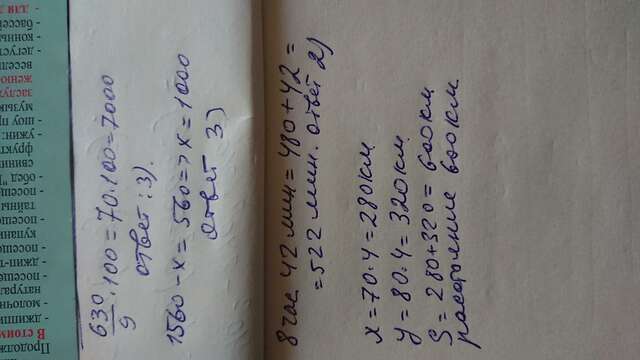 630/9 · 100 = 70 · 100 = 7000
ответ: 3).
1560 - x = 560 => x = 1000
ответ 3)
8 час 42 мин = 480 + 42 =
= 522 мин. ответ 2)
x = 70 · 4 = 280 км
y = 80 · 4 = 320 км
S = 280 + 320 = 600 км
расстояние 600 км
Продолж
В стоим
- джиппи
- молочн
натурал
- посеще
- джип-т
- посеще
купани
- посеще
тайны
- посещ
- обед
свинин
фрукт
- ужин:
- шоу пр
музык
заслу
женск
весел
- дегуст
- конны
- бассей